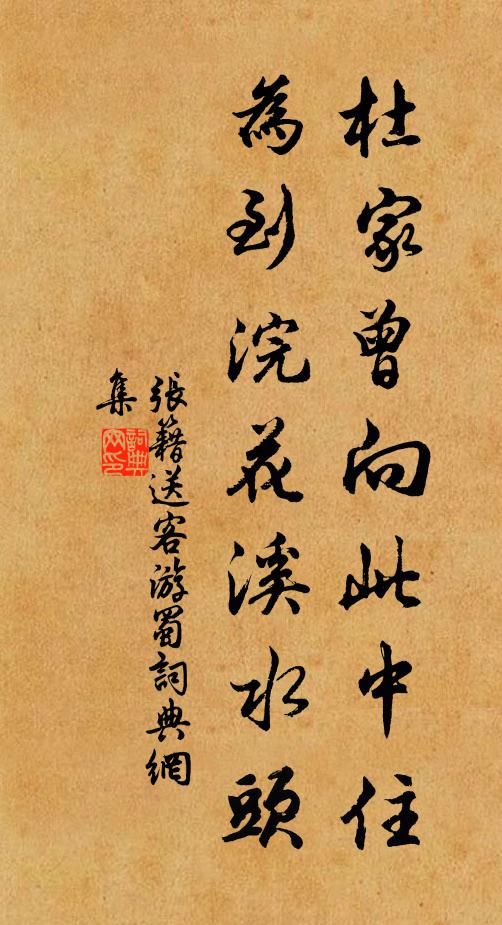 杜家曾向此中住
為到浣花溪水頭
張籍送客游蜀詞典網
集
詞典網印